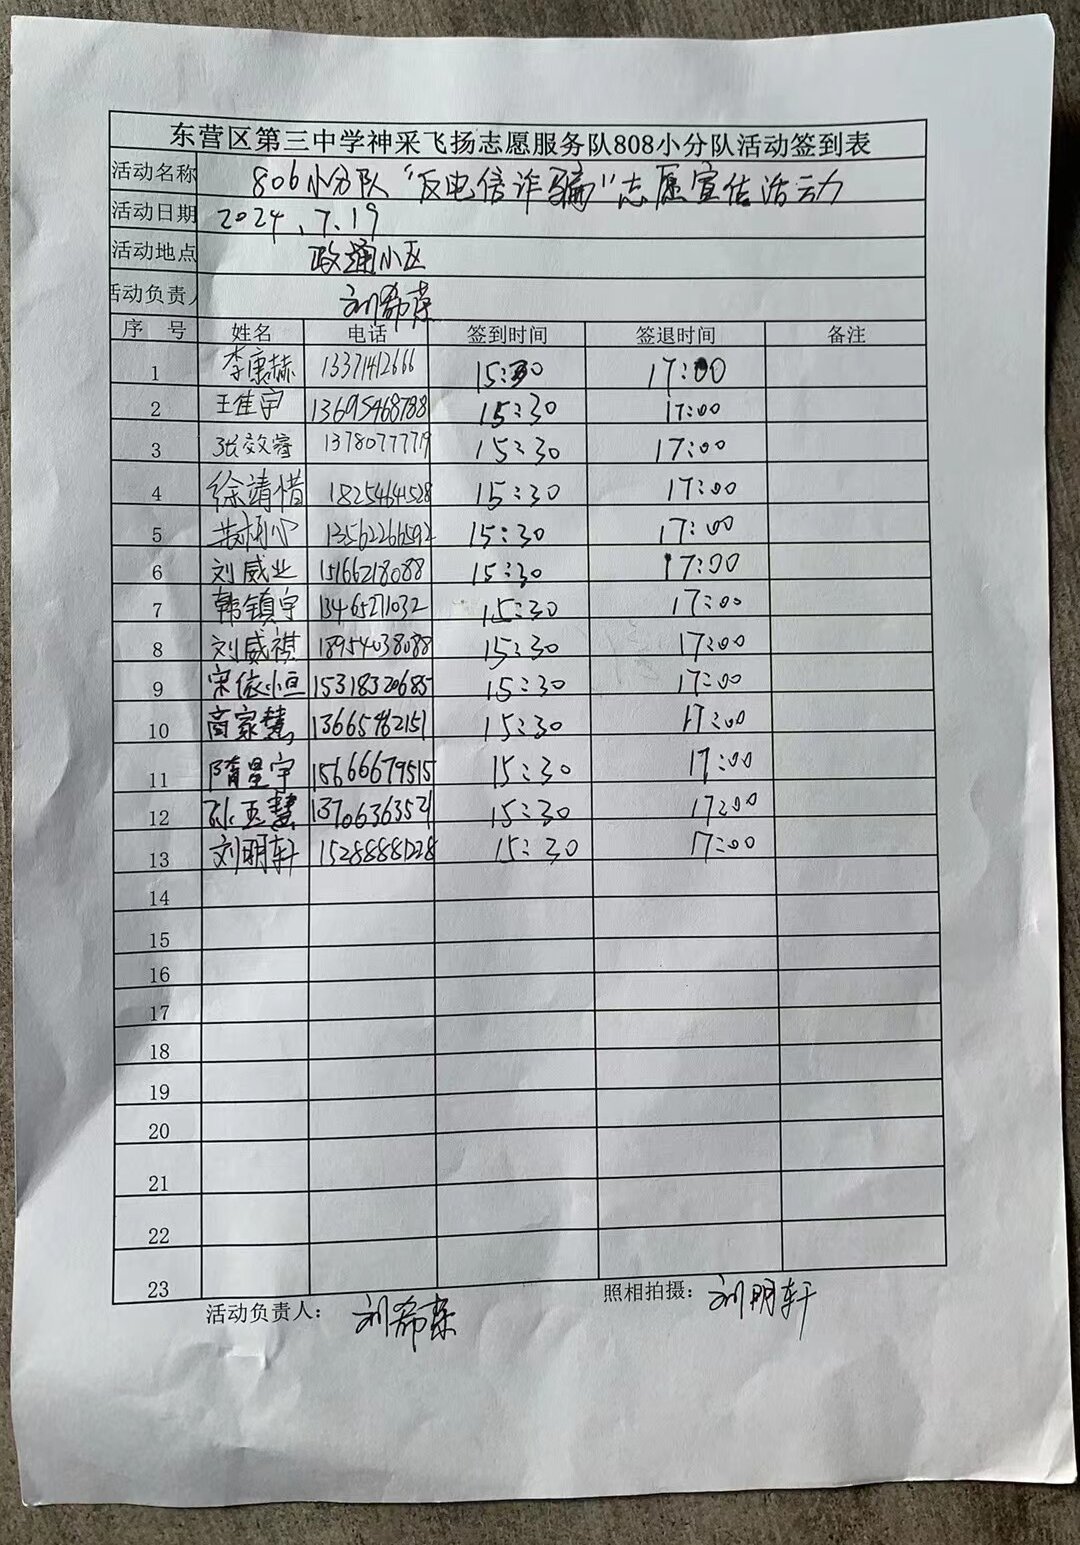 东营区第三中学神采飞扬志愿服务队808小分队活动签到表
活动名称 806小分队“反电信诈骗”志愿宣传活动
活动日期 2024.7.19
活动地点 政通小区
活动负责人 刘希荣
序 号 姓名 电话 签到时间 签退时间 备注
1 李康赫 13371412666 15:30 17:00
2 王佳宇 13695468788 15:30 17:00
3 张效睿 13780777719 15:30 17:00
4 徐靖惜 18254641528 15:30 17:00
5 13562266592 15:30 17:00
6 刘威业 15166218088 15:30 17:00
7 韩镇宇 13465271032 15:30 17:00
8 刘威祺 18954038088 15:30 17:00
9 宋依恒 15318320685 15:30 17:00
10 商家慧 13665462151 15:30 17:00
11 隋星宇 15666679515 15:30 17:00
12 孙玉慧 13706363521 15:30 17:00
13 刘明轩 15288881228 15:30 17:00
14
15
16
17
18
19
20
21
22
23
活动负责人： 刘希荣 照相拍摄： 刘明轩